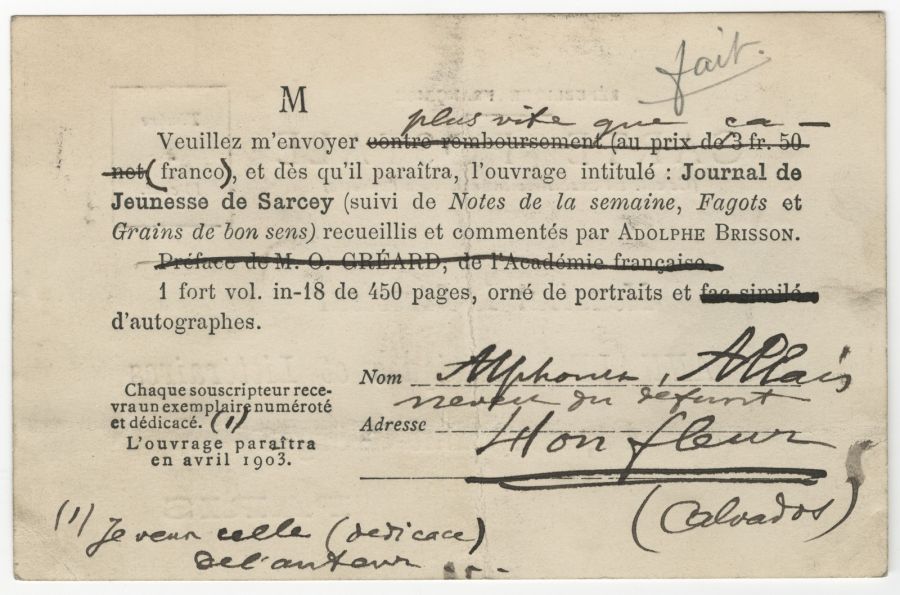 fait.
M
plus vite que ça —
Veuillez m'envoyer contre remboursement (au prix de 3 fr. 50
net (franco), et dès qu'il paraîtra, l'ouvrage intitulé : Journal de
Jeunesse de Sarcey (suivi de Notes de la semaine, Fagots et
Grains de bon sens) recueillis et commentés par ADOLPHE BRISSON.
Préface de M. O. GRÉARD, de l'Académie française.
1 fort vol. in-18 de 450 pages, orné de portraits et fac similé
d'autographes.
Nom Alphonse Allais
neveu du défunt
Adresse Honfleur
(Calvados)
Chaque souscripteur rece-
vra un exemplaire numéroté
et dédicacé. (1)
L'ouvrage paraîtra
en avril 1903.
(1) Je veux celle (dédicace)
de l'auteur